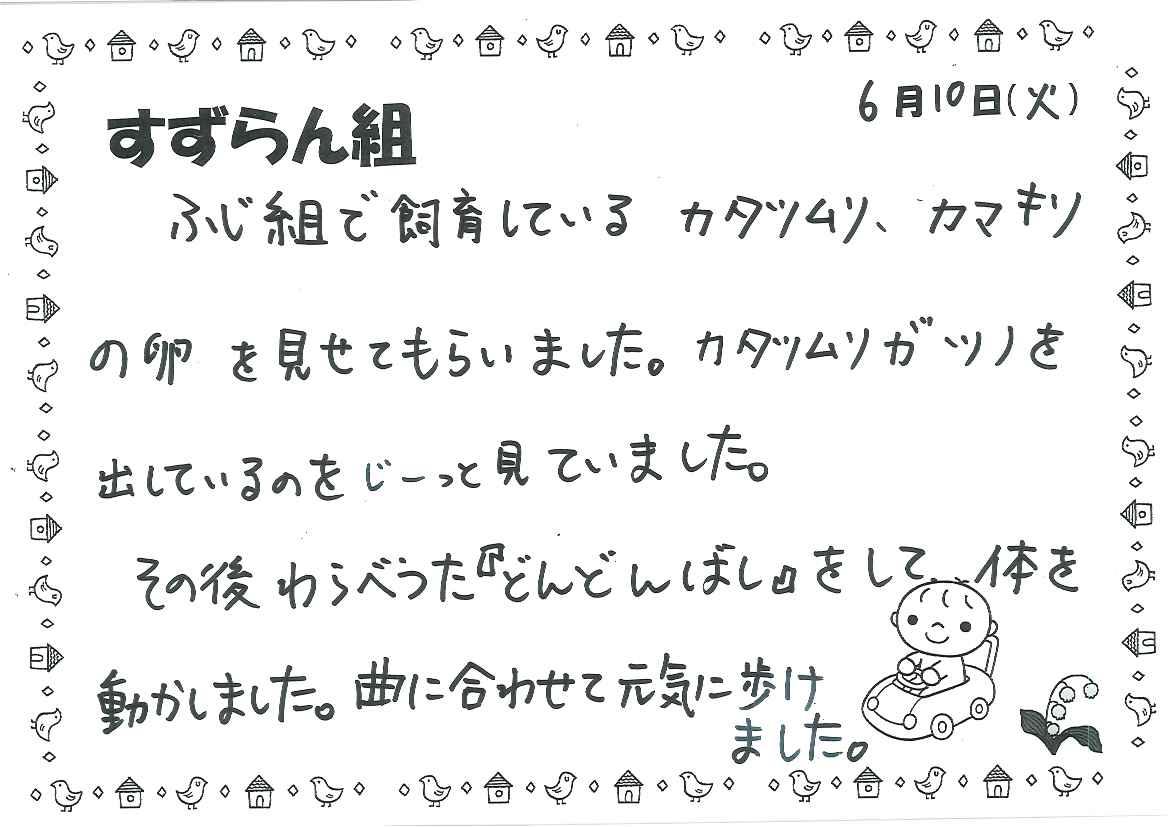 6月10日(火)
すずらん組
ふじ組で飼育している カタツムリ、カマキリ
の卵 を見せてもらいました。カタツムリがツノを
出しているのをじーっと見ていました。
その後わらべうた『どんどんばし』をして、体を
動かしました。曲に合わせて元気に歩け
ました。